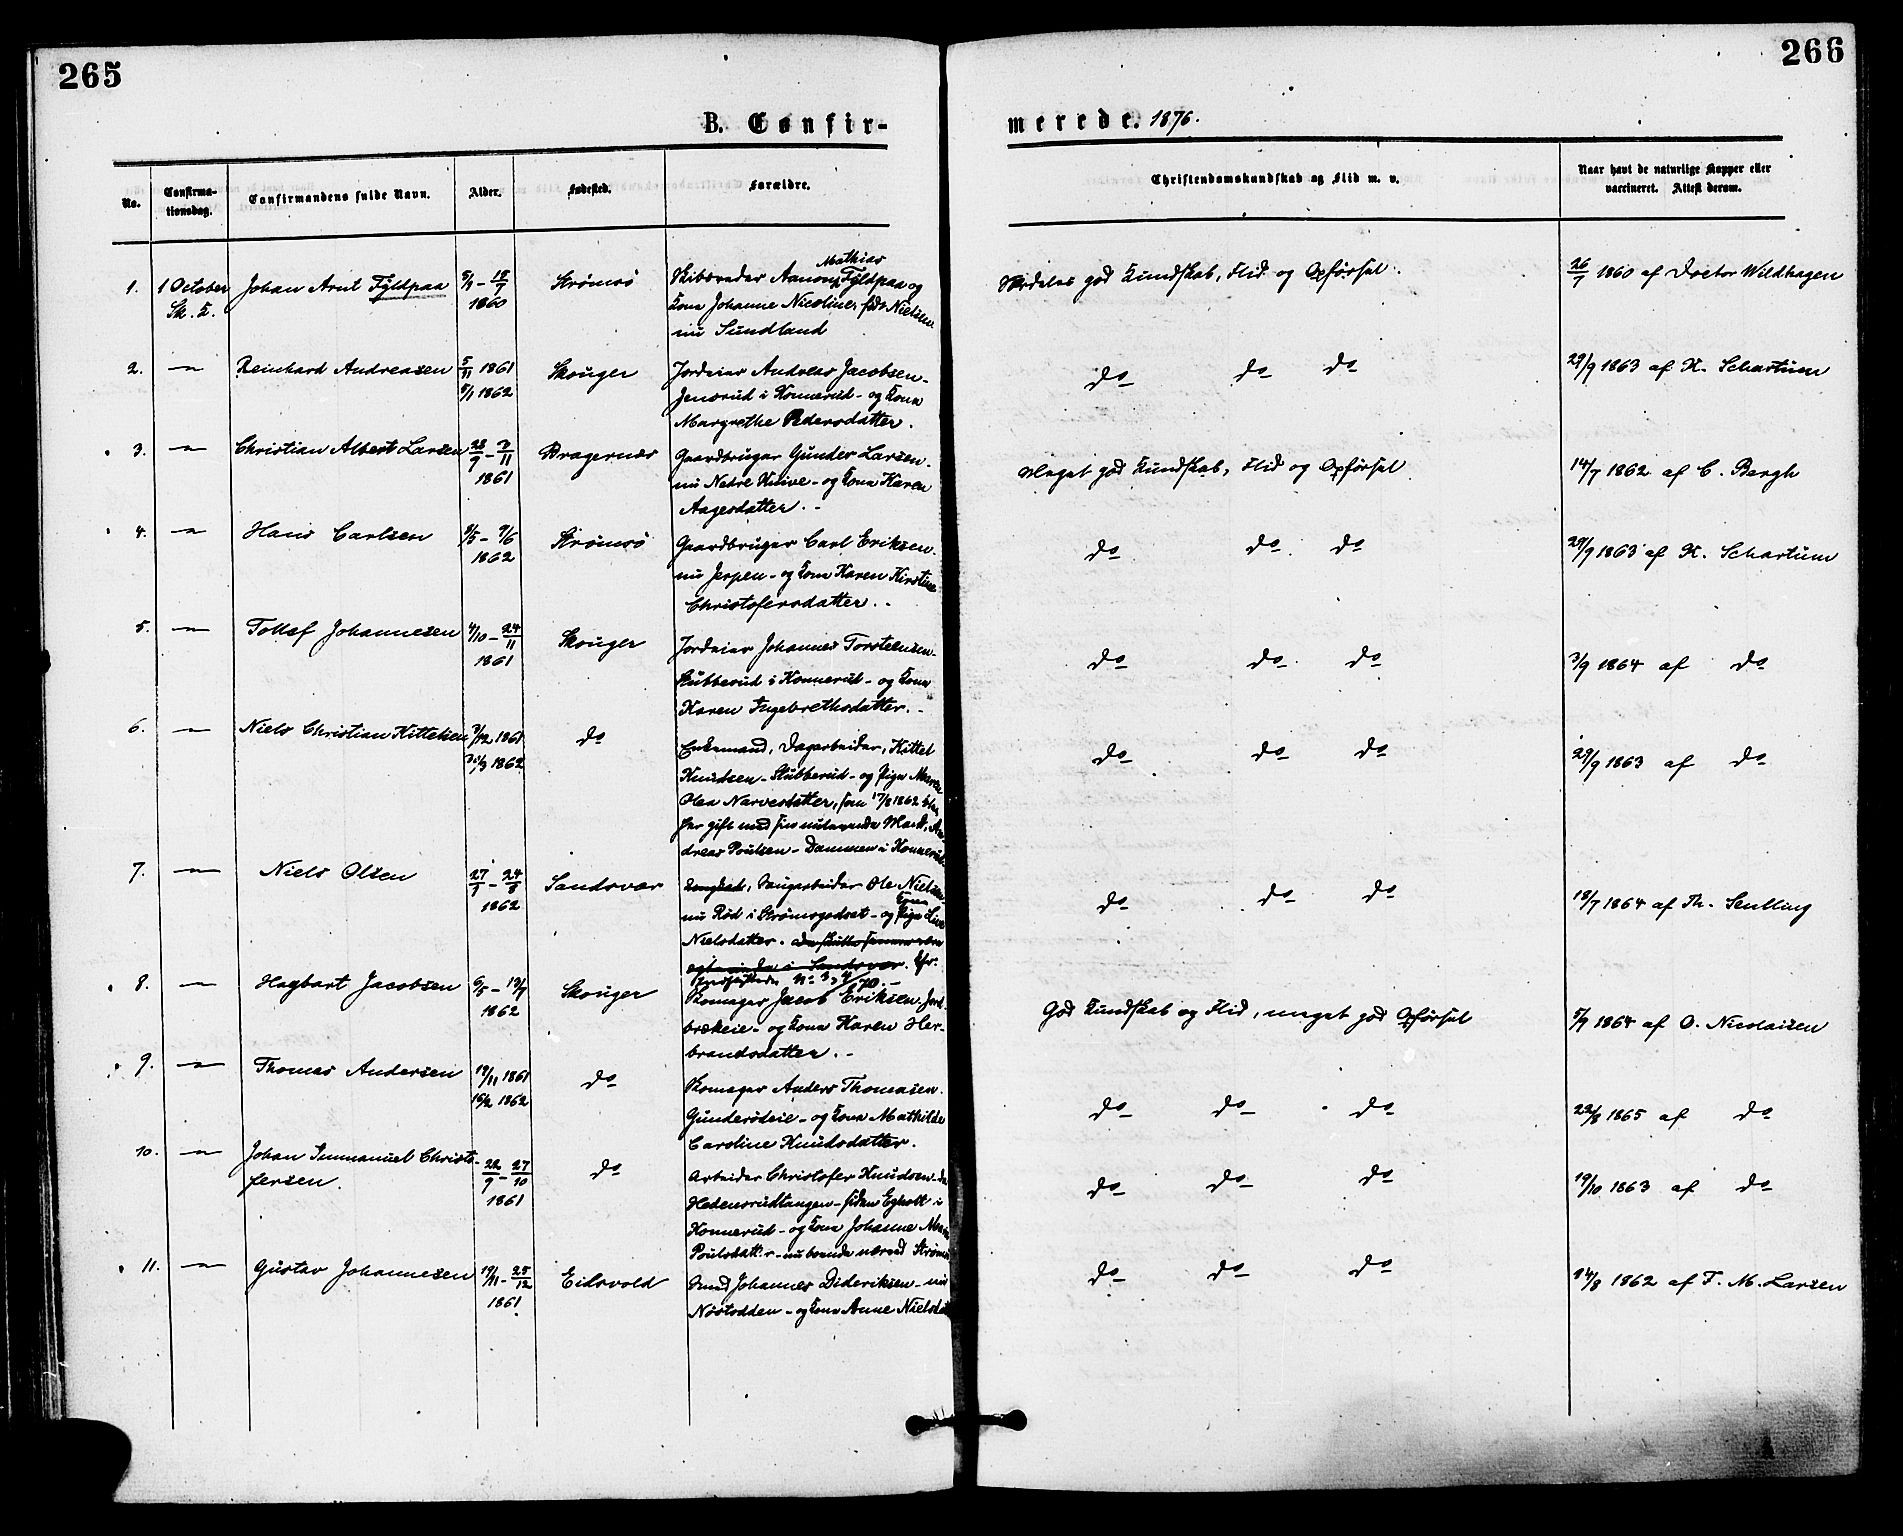 265
266
B. Confir-
merede. 1876.
No.
Confirma-
tionsdag.
Confirmandens fulde Navn.
Alder.
Fødested.
Forældre.
Christendomskundskab og Flid m. v.
Naar havt de naturlige Kopper eller
vaccineret. Attest derom.
1. 1 October Johan Arnt Fyldpaa Strømsø Mathias
Sk. K. 1860 Skibsreder Aanon Fyldpaa og
Kona Johanne Nicoline, fød Nielsen
nu Sundland
Særdeles god Kundskab, Flid og Opførsel. 26/7 1860 af Doctor Wildhagen
2. — Reinhard Andreasen 5/11 1861 Skouger Jordeier Andreas Jacobsen-
1862 Jensrud i Konnerud - og Kona
Margrethe Pedersdatter.
do do do 29/9 1863 af K. Schartum
3. — Christian Albert Larsen Bragernæs Gaardbruger Gunder Larsen.
1861 nu Nedre Knive - og Kona Karen
Aagesdatter. -
Meget god Kundskab, Flid og Opførsel 14/7 1862 af C. Bergh
4. — Hans Carlsen 8/5 - 9/6 Strømsø Gaardbruger Carl Eriksen.
1862 nu Jerpen - og Kona Karen Kirstine
Christofersdatter. -
do do do 29/9 1863 af K. Schartum
5. — Tollef Johannesen 4/10 - 24/11 Skouger Jordeier Johannes Torstensen-
1861 Stubberud i Konnerud - og Kona
Karen Ingebrethsdatter. -
do do do 3/9 1864 af do
6. — Niels Christian Kittelsen 1861 do Enkemand, Dagarbeider, Kittel
1862 Knudsen - Stubberud - og Pige Maren
Olea Narvesdatter, som 17/8 1862 blev
her gift med sin nulevende Mand, An-
dreas Poulsen - Dammen i Konnerud
do do do 29/9 1863 af do
7. — Niels Olsen Sandsvær Ungkarl, Saugarbeider Ole Nielsen
1862 Kona
nu Rød i Strømsgodset - og Pige Line
Nielsdatter.
i Sandsvær.
do do do 18/7 1864 af Th.
8. — Hagbart Jacobsen 6/5 - 19/7 Skouger Skomager Jacob Eriksen Jord-
1862 brækeie - og Kona Karen Her-
brandsdatter. -
God Kundskab og Flid, meget god Opførsel 1864 af O. Nicolaisen
9. — Thomas Andersen 19/11 1861 do Skomager Anders Thomasen.
16/2 1862 Gunderseie - og Kona Mathilde
Caroline Knudsdatter.
do do do 22/8 1865 af do
10. — Johan Immanuel Christo- 22/9 - 27/10 do Arbeider Christofer Knudsen. da
fersen. 1861 Hedensrudtangen - siden Egholt i
Konnerud - og Kona Johanne Maria
Poulsdatter - nu boende ved Strøms
do do do 19/10 1863 af do
11. — Gustav Johannesen 19/11 - 25/12 Eidsvold Smed Johannes Dideriksen - nu
1861. Nøstodden - og Kona Anne Nielsd
do do do 14/8 1862 af F. M. Larsen